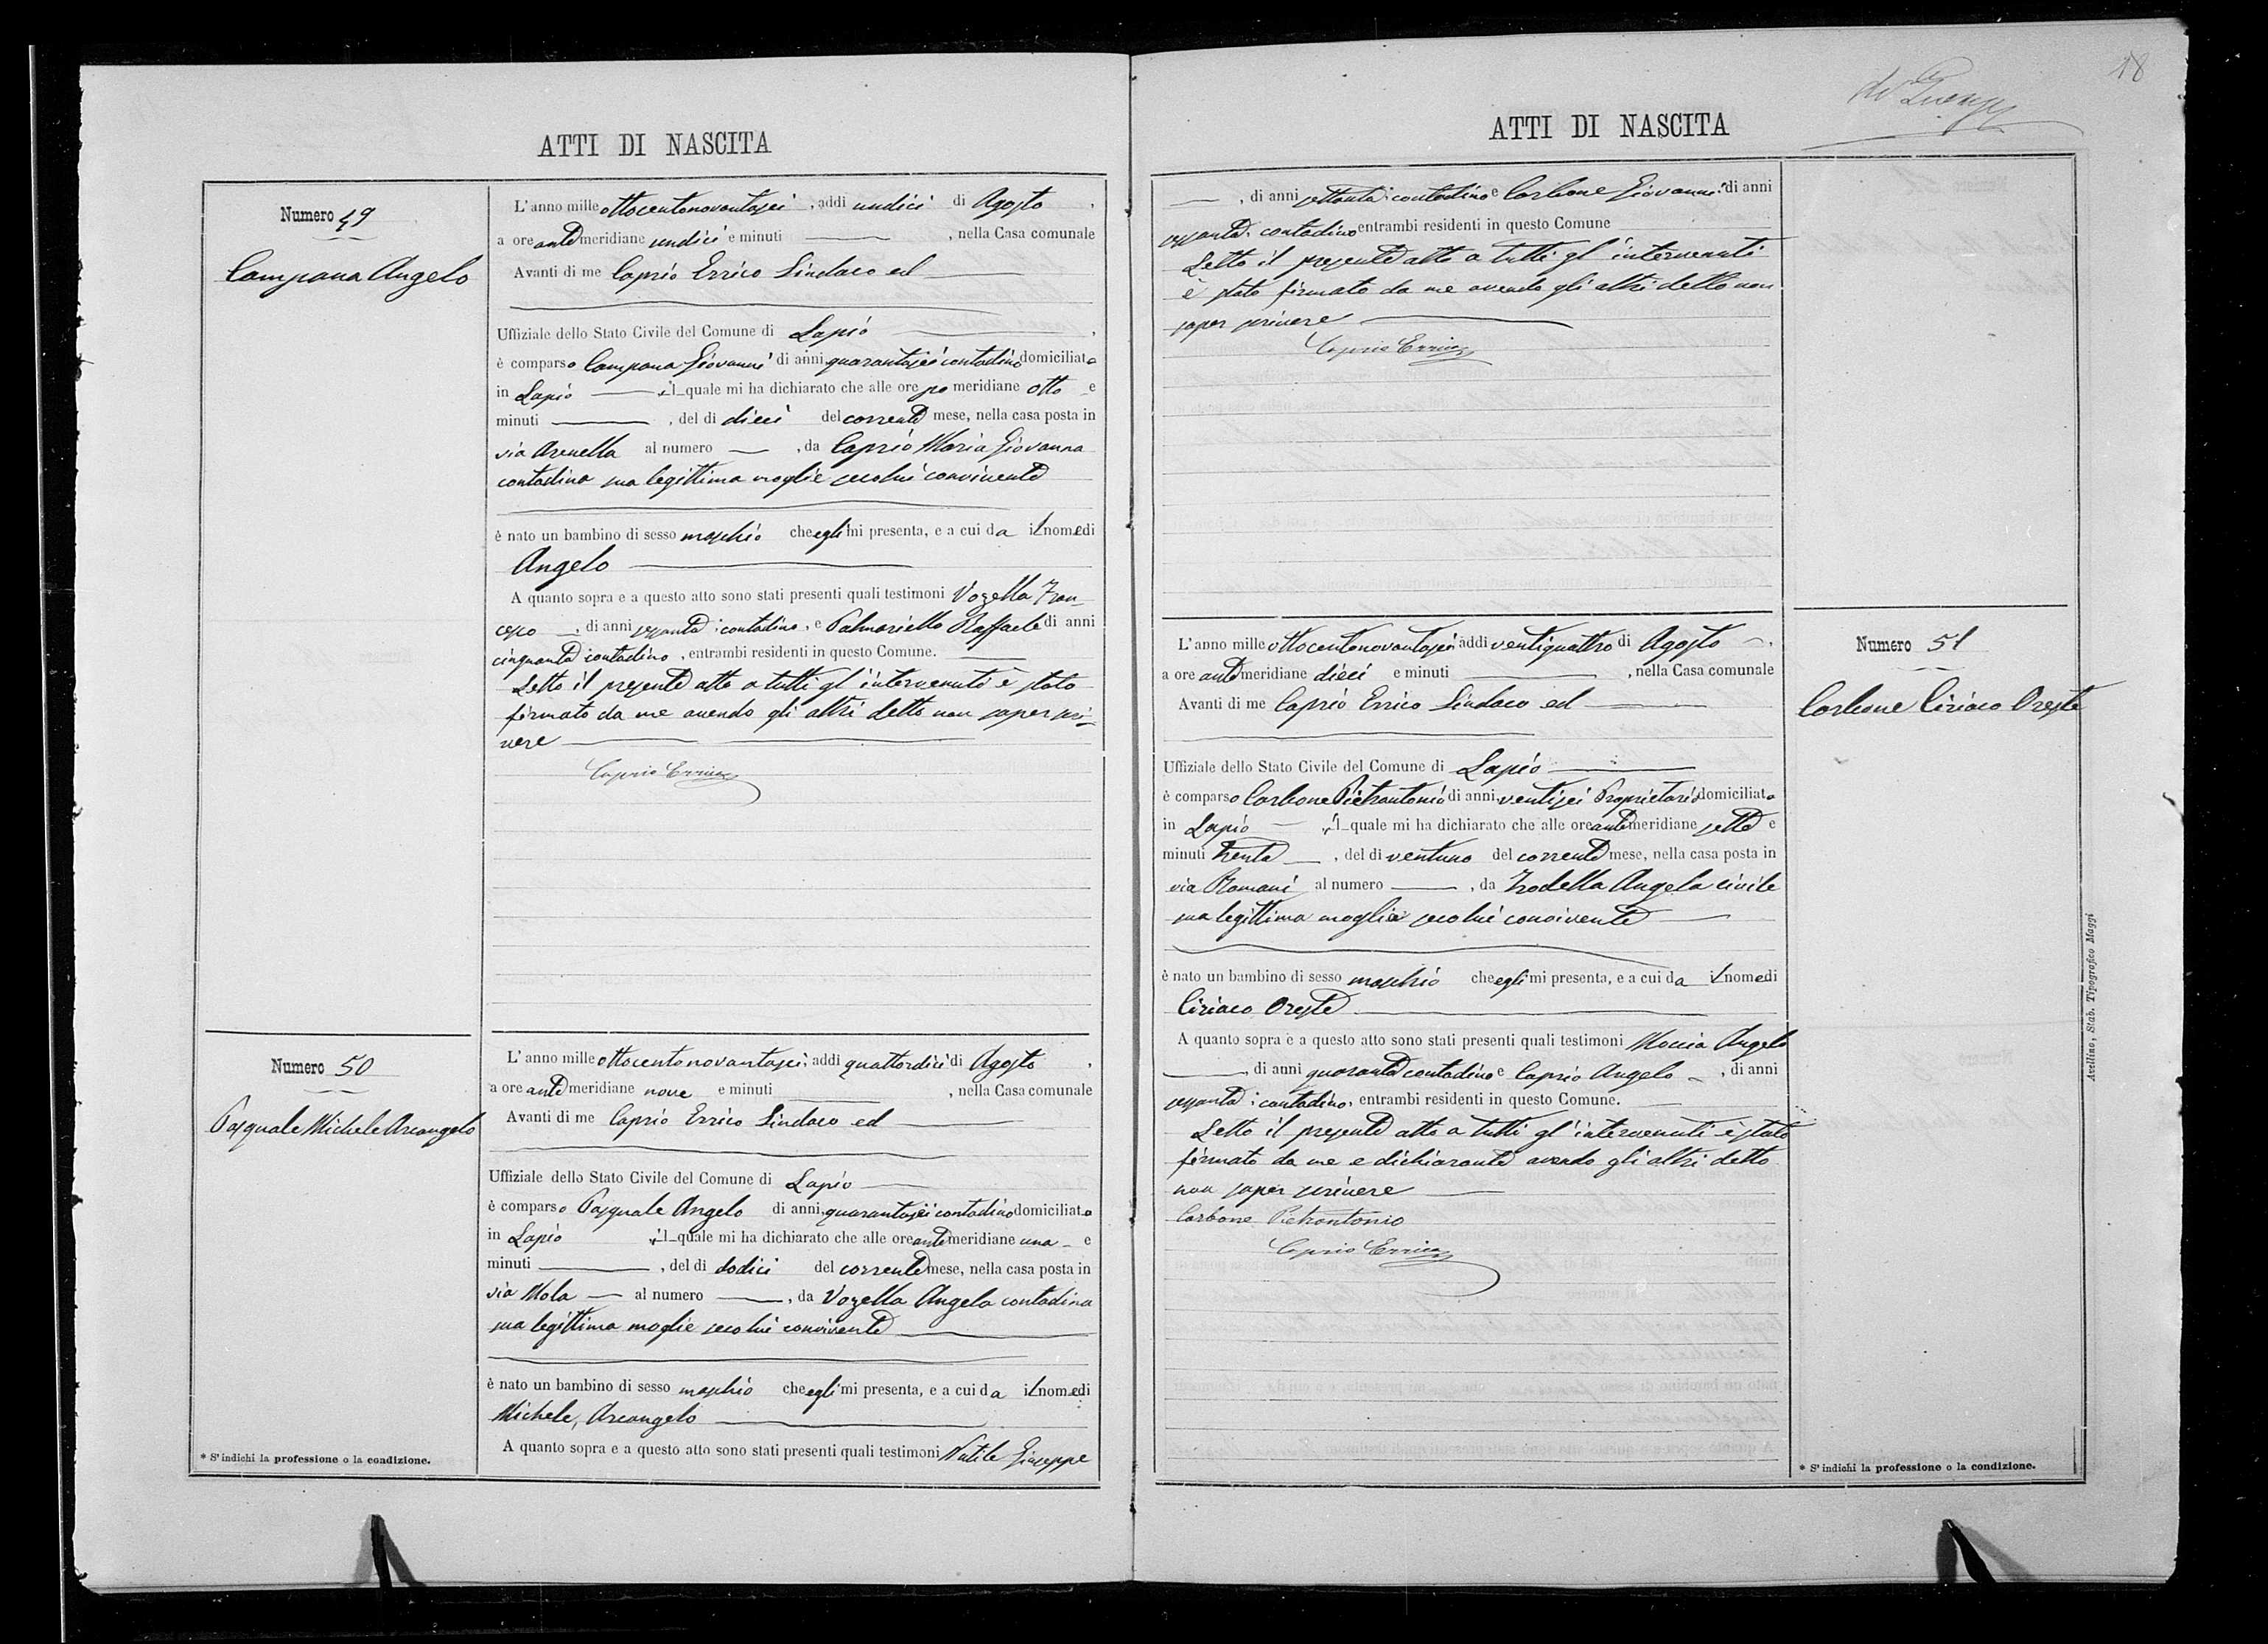 ATTI DI NASCITA
Numero 49
Campana Angelo
L'anno mille ottocentonovantasei, addi undici di Agosto,
a ore antemeridiane undici e minuti , nella Casa comunale
Avanti di me Caprio Errico Sindaco ed
Uffiziale dello Stato Civile del Comune di Lapio,
è comparso Campana Giovanni di anni quarantasei contadino domiciliato
in Lapio il quale mi ha dichiarato che alle ore pomeridiane otto e
minuti , del di dieci del corrente mese, nella casa posta in
via Arenella al numero , da Caprio Maria Giovanna
contadina sua legittima moglie secolui convivente
è nato un bambino di sesso maschio che egli mi presenta, e a cui da il nome di
Angelo
A quanto sopra e a questo atto sono stati presenti quali testimoni Vozella Fran-
cesco , di anni sessanta contadino, e Palmariello Raffaele di anni
cinquanta contadino, entrambi residenti in questo Comune.
Letto il presente atto a tutti gl'intervenuti è stato
firmato da me avendo gli altri detto non saper scri-
vere
Caprio Errico
Numero 50
Pasquale Michele Arcangelo
L'anno mille ottocentonovantasei, addi quattordici di Agosto,
a ore antemeridiane nove e minuti , nella Casa comunale
Avanti di me Caprio Errico Sindaco ed
Uffiziale dello Stato Civile del Comune di Lapio
è comparso Pasquale Angelo di anni, quarantasei contadino domiciliato
in Lapio il quale mi ha dichiarato che alle ore antimeridiane una e
minuti , del di dodici del corrente mese, nella casa posta in
via Mola al numero , da Vozella Angela contadina
sua legittima moglie secolui convivente
è nato un bambino di sesso maschio che egli mi presenta, e a cui da il nome di
Michele, Arcangelo
A quanto sopra e a questo atto sono stati presenti quali testimoni Natile Giuseppe
* S'indichi la professione o la condizione.
18
ATTI DI NASCITA
, di anni settanta contadino e Carbone Giovanni di anni
sessanta, contadino entrambi residenti in questo Comune
Letto il presente atto a tutti gl'intervenuti
è stato firmato da me avendo gli altri detto non
saper scrivere
Caprio Errico
Numero 51
Carbone Ciriaco Oreste
L'anno mille ottocentonovantasei addi ventiquattro di Agosto,
a ore antemeridiane dieci e minuti , nella Casa comunale
Avanti di me Caprio Errico Sindaco ed
Uffiziale dello Stato Civile del Comune di Lapio
è comparso Carbone Pietrantonio di anni ventisei Proprietario domiciliato
in Lapio il quale mi ha dichiarato che alle ore antemeridiane sette e
minuti trenta , del di ventuno del corrente mese, nella casa posta in
via Romani al numero , da Trodella Angela civile
sua legittima moglie secolui convivente
è nato un bambino di sesso maschio che egli mi presenta, e a cui da il nome di
Ciriaco Oreste
A quanto sopra e a questo atto sono stati presenti quali testimoni Moccia Angelo
, di anni quaranta contadino e Caprio Angelo , di anni
sessanta contadino, entrambi residenti in questo Comune.
Letto il presente atto a tutti gl'intervenuti è stato
firmato da me e dichiarante avendo gli altri detto
non saper scrivere
Carbone Pietrantonio
Caprio Errico
Avellino, Stab. Tipografico Maggi
* S'indichi la professione o la condizione.